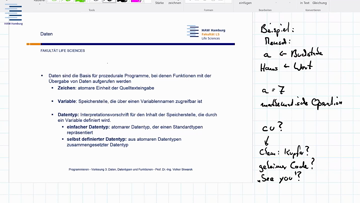 Daten
HAW Hamburg
Fakultät LS
Life Sciences
FAKULTÄT LIFE SCIENCES
Daten sind die Basis für prozedurale Programme, bei denen Funktionen mit der
Übergabe von Daten aufgerufen werden
Zeichen: atomare Einheit der Quelltexteingabe
Variable: Speicherstelle, die über einen Variablennamen zugreifbar ist
Datentyp: Interpretationsvorschrift für den Inhalt der Speicherstelle, die durch
ein Variable definiert wird.
einfacher Datentyp: atomarer Datentyp, der einen Standardtypen
repräsentiert
selbst definierter Datentyp: aus atomaren Datentypen
zusammengesetzter Datentyp
Beispiel:
Mensch:
a ← Buchstabe
Haus ← Wort
a = 7
cu?
Chem: Kupfer?
geheimer Code?
"See you"?